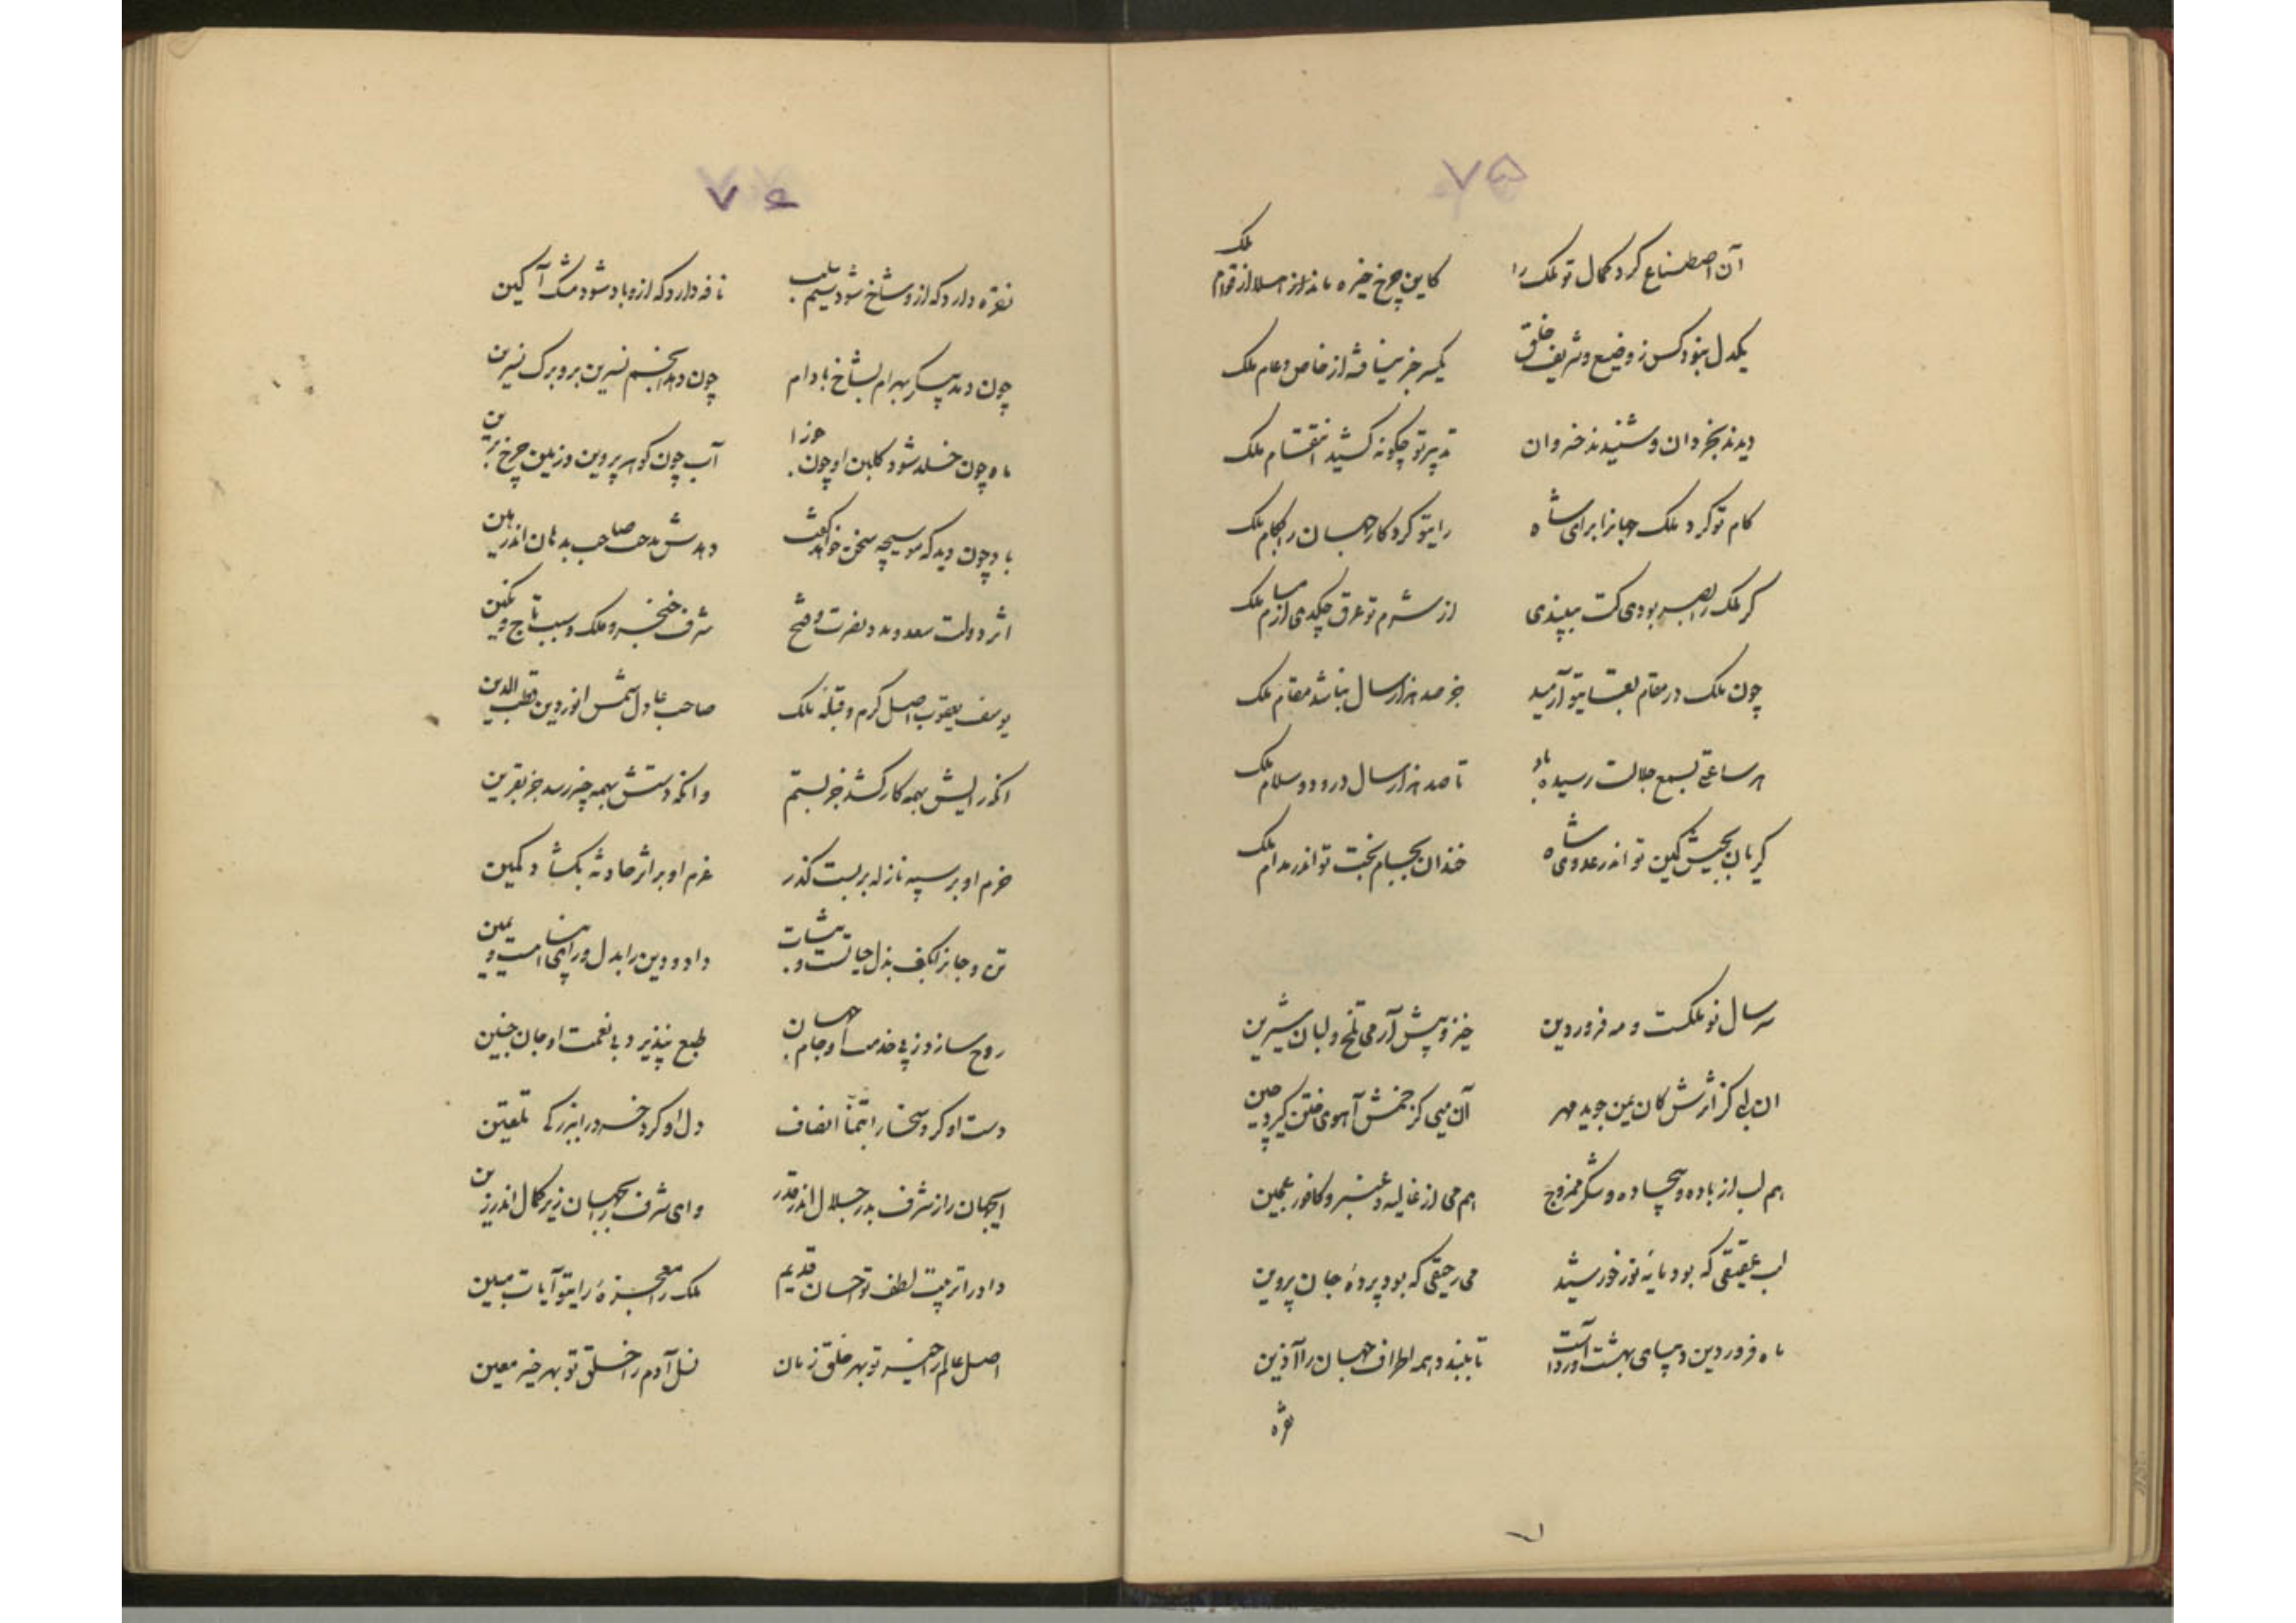 ۷۵
آن اصطناع کرد کمال تو ملک را کاین چرخ خیره ماند از قوام ملک
یکدل نبود کس ز وضیع و شریف خلق یکسر جز نیافه از خاص و عام ملک
دیدند بخردان و شنیدند خسروان تدبیر تو چگونه کشید انتقام ملک
کام تو کرد ملک جهانرا برای شاه رایتو کرد کار جهان را بکام ملک
کر ملک را بصر بودی کت ببیندی از شرم تو عرق چکدی از مسام ملک
چون ملک در مقام بقا بتو آرمید جز صد هزار سال نباشد مقام ملک
هر ساعتی بسمع جلالت رسیده باد تا صد هزار سال درود و سلام ملک
کریان بجیش کین تو اندر عدوی شاه خندان بجام بخت تو اندر مدام ملک
سر سال نو ملکست و مه فروردین خیز و پیش آر می تلخ و لبان شیرین
ان لبی کز اثرش کان یمن جوید مهر آن میی کز خمش آهوی ختن کیرد چین
هم لب از باده و بیجاده و شکر ممزوج هم می از غالیه و عنبر و کافور عجین
لب عقیقی که بود مایه نور خورشید می رحیقی که بود پردهٔ جان پروین
ماه فروردین دیبای بهشت آورداست تا ببندد همه اطراف جهان را آذین
نقره
۷۶
نقره دارد که ازو شاخ شود سیم سلب نافه دارد که ازو باد شود مشک آکین
چون دمد پیکر بهرام بشاخ بادام چون دهد انجم نسرین بر و برک نسرین
ماه چون خلد شود کلبن او چون حوزا آب چون کوهر پروین و زمین چرخ برین
باد چون دید که موسیچه سخن خواهد کفت دهدش مدحت صاحب بدهان اندر هین
اثر دولت سعد و مدد نصرت و فتح شرف خنجر و ملک و سبب تاج و نکین
یوسف یعقوب اصل کرم و قبلهٔ ملک صاحب عادل شمس انور دین قطب الدین
انکه رایش بهمه کار کشد جز بستم وانکه دستش بهمه چیز رسد جز بقرین
حزم او بر سپه نازله بر بست کذر عزم او بر اثر حادثه بکشاد کمین
تن و جانرا بکف بذل حیاتست و نشات داد و دین را بدل و رای امیست و یمین
روح سازد ز پی خدمت او جام جهان طبع نپذیرد بی نعمت او جان جنین
دست او کرد سخا را بتمنا انصاف دل او کرد خرد را بزرکی تلقین
ایجهان را ز شرف بدر جلال اندر قدر وای شرف را بجهان زیر کمال اندر زین
داد را تربیت لطف تو احسان قدیم ملک را معجزهٔ رایتو آیات مبین
اصل عالم را خیر تو بهر خلق زمان نسل آدم را خلق تو بهر خیر معین